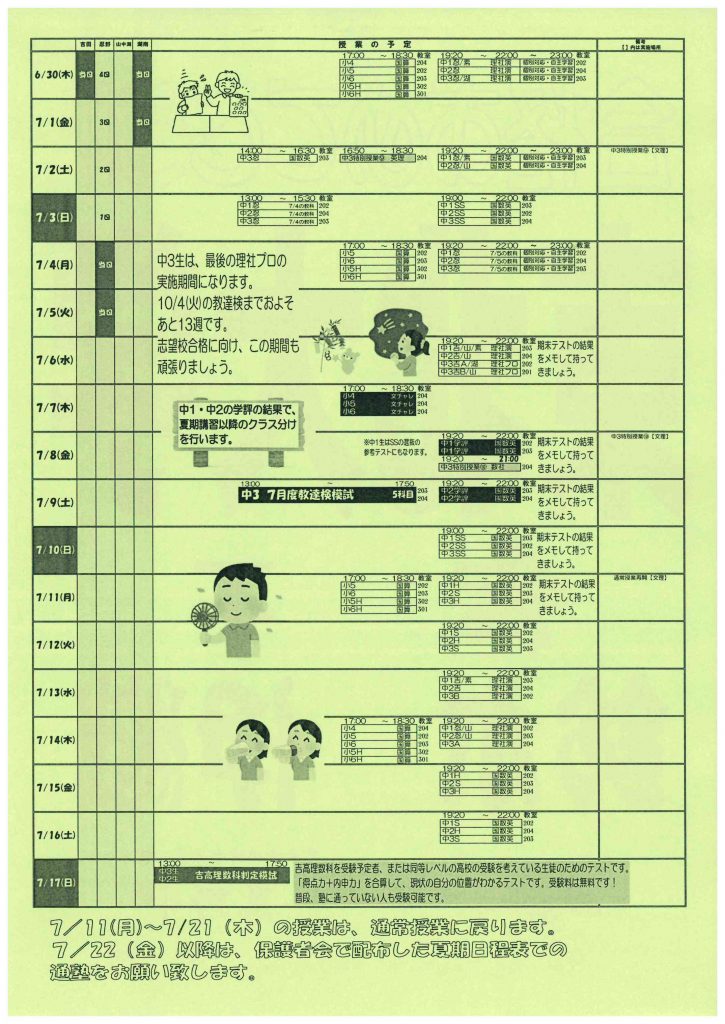 吉田 忍野 山中湖 湖南 授業の予定 備考
【 】内は実施場所
6/30(木) 当日 4日 当日
17:00 ～ 18:30 教室 19:20 ～ 22:00 ～ 23:00 教室
小4 国算 204 中1忍/素 理社演 個別対応・自主学習 202
小5 国算 202 中2忍 理社演 個別対応・自主学習 203
小6 国算 203 中3忍/湖 理社演 個別対応・自主学習 204
小5H 国算 502
小6H 国算 301
7/1(金) 3日 当日
7/2(土) 2日
14:00 ～ 16:30 教室 16:50 ～ 18:30 19:20 ～ 22:00 ～ 23:00 教室 中3特別授業⑤【文理】
中3忍 国数英 203 英理 204 中1忍/素 国数英 個別対応・自主学習 203
中2忍/山 国数英 個別対応・自主学習 204
7/3(日) 1日
13:00 ～ 15:30 教室 19:00 ～ 22:00 教室
中1忍 7/4の教科 202 中1SS 国数英 203
中2忍 7/4の教科 204 中2SS 国数英 202
中3忍 7/4の教科 203 中3SS 国数英 204
7/4(月) 当日
17:00 ～ 18:30 教室 19:20 ～ 22:00 ～ 23:00 教室
小5 国算 202 中1忍 7/5の教科 個別対応・自主学習 202
小6 国算 203 中2忍 7/5の教科 個別対応・自主学習 204
小5H 国算 302 中3忍 7/5の教科 個別対応・自主学習 203
小6H 国算 301
中3生は、最後の理社プロの
実施期間になります。
10/4(火)の教達検までおよそ
あと13週です。
志望校合格に向け、この期間も
頑張りましょう。
7/5(火) 当日
7/6(水)
19:20 ～ 22:00 教室
中1吉/山/素 理社演 203
中2吉/山 理社演 202
中3吉A/湖 理社プロ 204
中3吉B/山 理社プロ 201
期末テストの結果
をメモして持って
きましょう。
7/7(木)
17:00 ～ 18:30 教室
小4 文チャレ 204
小5 文チャレ 204
小6 文チャレ 204
中1・中2の学評の結果で、
夏期講習以降のクラス分け
を行います。
7/8(金)
※中1生はSSの選抜の
参考テストにもなります。
19:20 ～ 22:00 教室
中1学評 国数英 202
中1学評 国数英 203
19:20 ～ 21:00
数社 204
期末テストの結果
をメモして持って
きましょう。
7/9(土)
13:00 ～ 17:50
中3 7月度教達検模試 5科目 203
204
19:20 ～ 22:00 教室
中2学評 国数英 203
中2学評 国数英 204
期末テストの結果
をメモして持って
きましょう。
7/10(日)
19:00 ～ 22:00 教室
中1SS 国数英 203
中2SS 国数英 202
中3SS 国数英 204
期末テストの結果
をメモして持って
きましょう。
7/11(月)
17:00 ～ 18:30 教室 19:20 ～ 22:00 教室 通常授業再開【文理】
小5 国算 202 中1H 国数英 202
小6 国算 203 中2S 国数英 203
小5H 国算 302 中3H 国数英 204
小6H 国算 301
期末テストの結果
をメモして持って
きましょう。
7/12(火)
19:20 ～ 22:00 教室
中1S 国数英 202
中2H 国数英 204
中3S 国数英 203
7/13(水)
19:20 ～ 22:00 教室
中1吉/素 理社演 203
中2吉 理社演 202
中3B 理社演 204
7/14(木)
17:00 ～ 18:30 教室 19:20 ～ 22:00 教室
小4 国算 204 中1忍/山 理社演 202
小5 国算 202 中2忍/山 理社演 203
小6 国算 203 中3A 理社演 204
小5H 国算 302
小6H 国算 301
7/15(金)
19:20 ～ 22:00 教室
中1H 国数英 202
中2S 国数英 203
中3H 国数英 204
7/16(土)
19:20 ～ 22:00 教室
中1S 国数英 202
中2H 国数英 204
中3S 国数英 203
7/17(日)
13:00 ～ 17:50
中3生
中2生 吉高理数科判定模試
吉高理数科を受験予定者、または同等レベルの高校の受験を考えている生徒のためのテストです。
「得点力＋内申力」を合算して、現状の自分の位置がわかるテストです。受験料は無料です！
普段、塾に通っていない人も受験可能です。
7/11(月)～7/21（木）の授業は、通常授業に戻ります。
7/22（金）以降は、保護者会で配布した夏期日程表での
通塾をお願い致します。